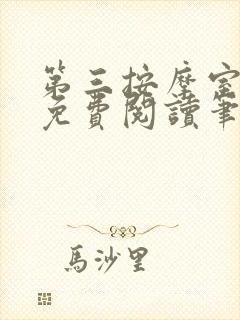 第三按摩室
免費閱讀筆
馬沙里